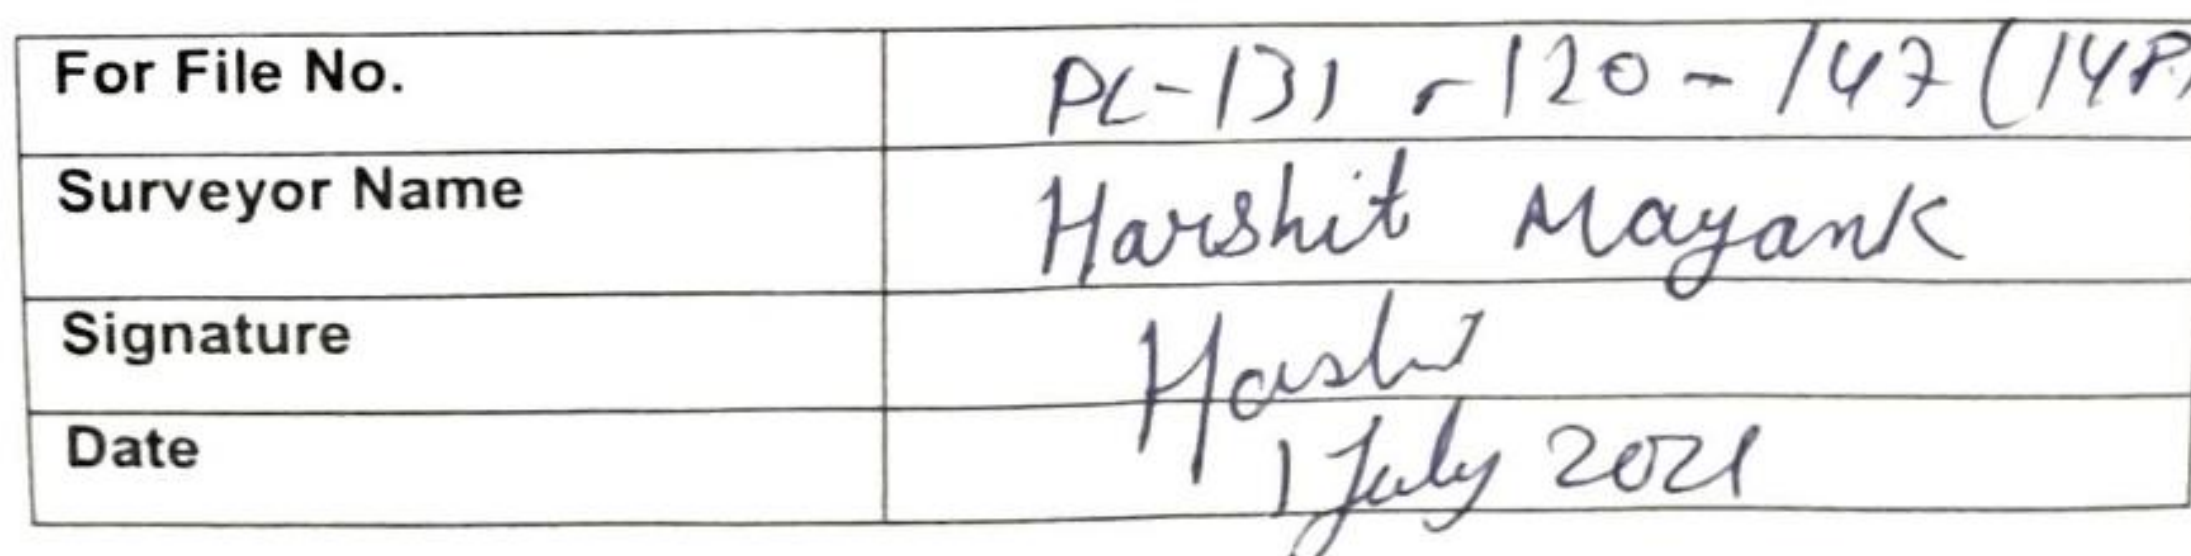 For File No. PL-131-120-147 (148)
Surveyor Name Harshit Mayank
Signature Harshit
Date 1 July 2021